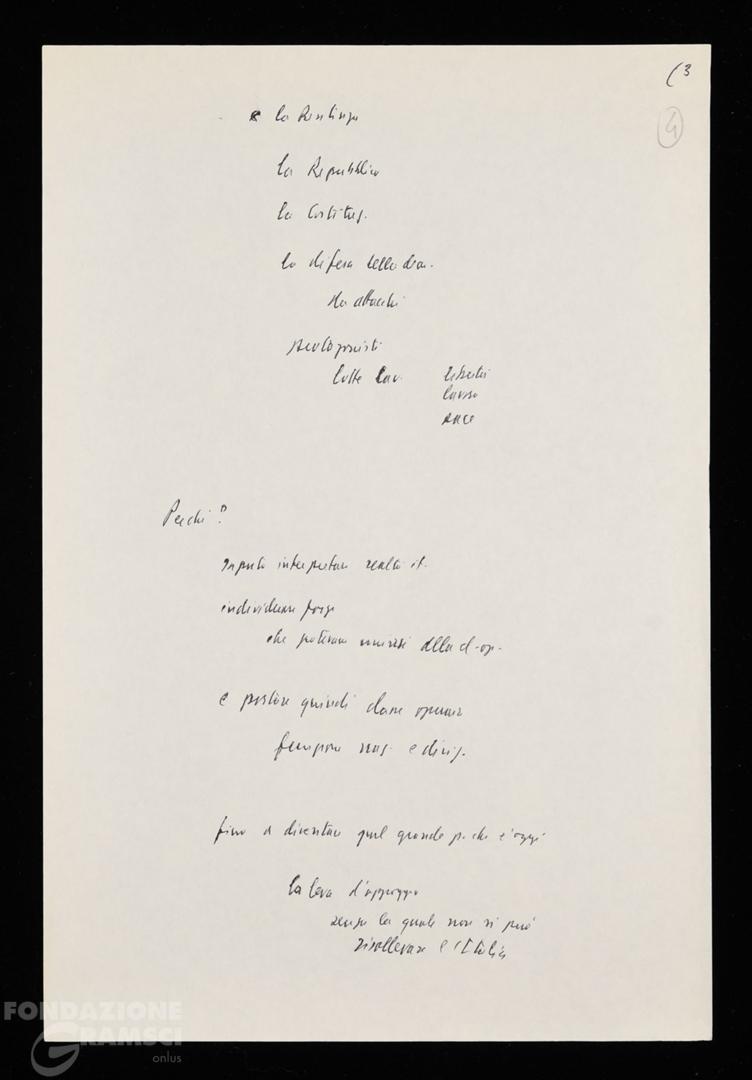 (3
4
la Resistenza
la Repubblica
la Costituz.
la difesa della dem.
da attacchi
protagonisti
lotte lav. libertà
lavoro
pace
Perché?
saputo interpretare realtà it.
individuare forze
che potevano unirsi alla cl. op.
e portare quindi classe operaia
funzione naz. e dirig.
fino a diventare quel grande p. che è oggi
la leva d'appoggio
senza la quale non si può
risollevare l'Italia
FONDAZIONE
GRAMSCI
onlus